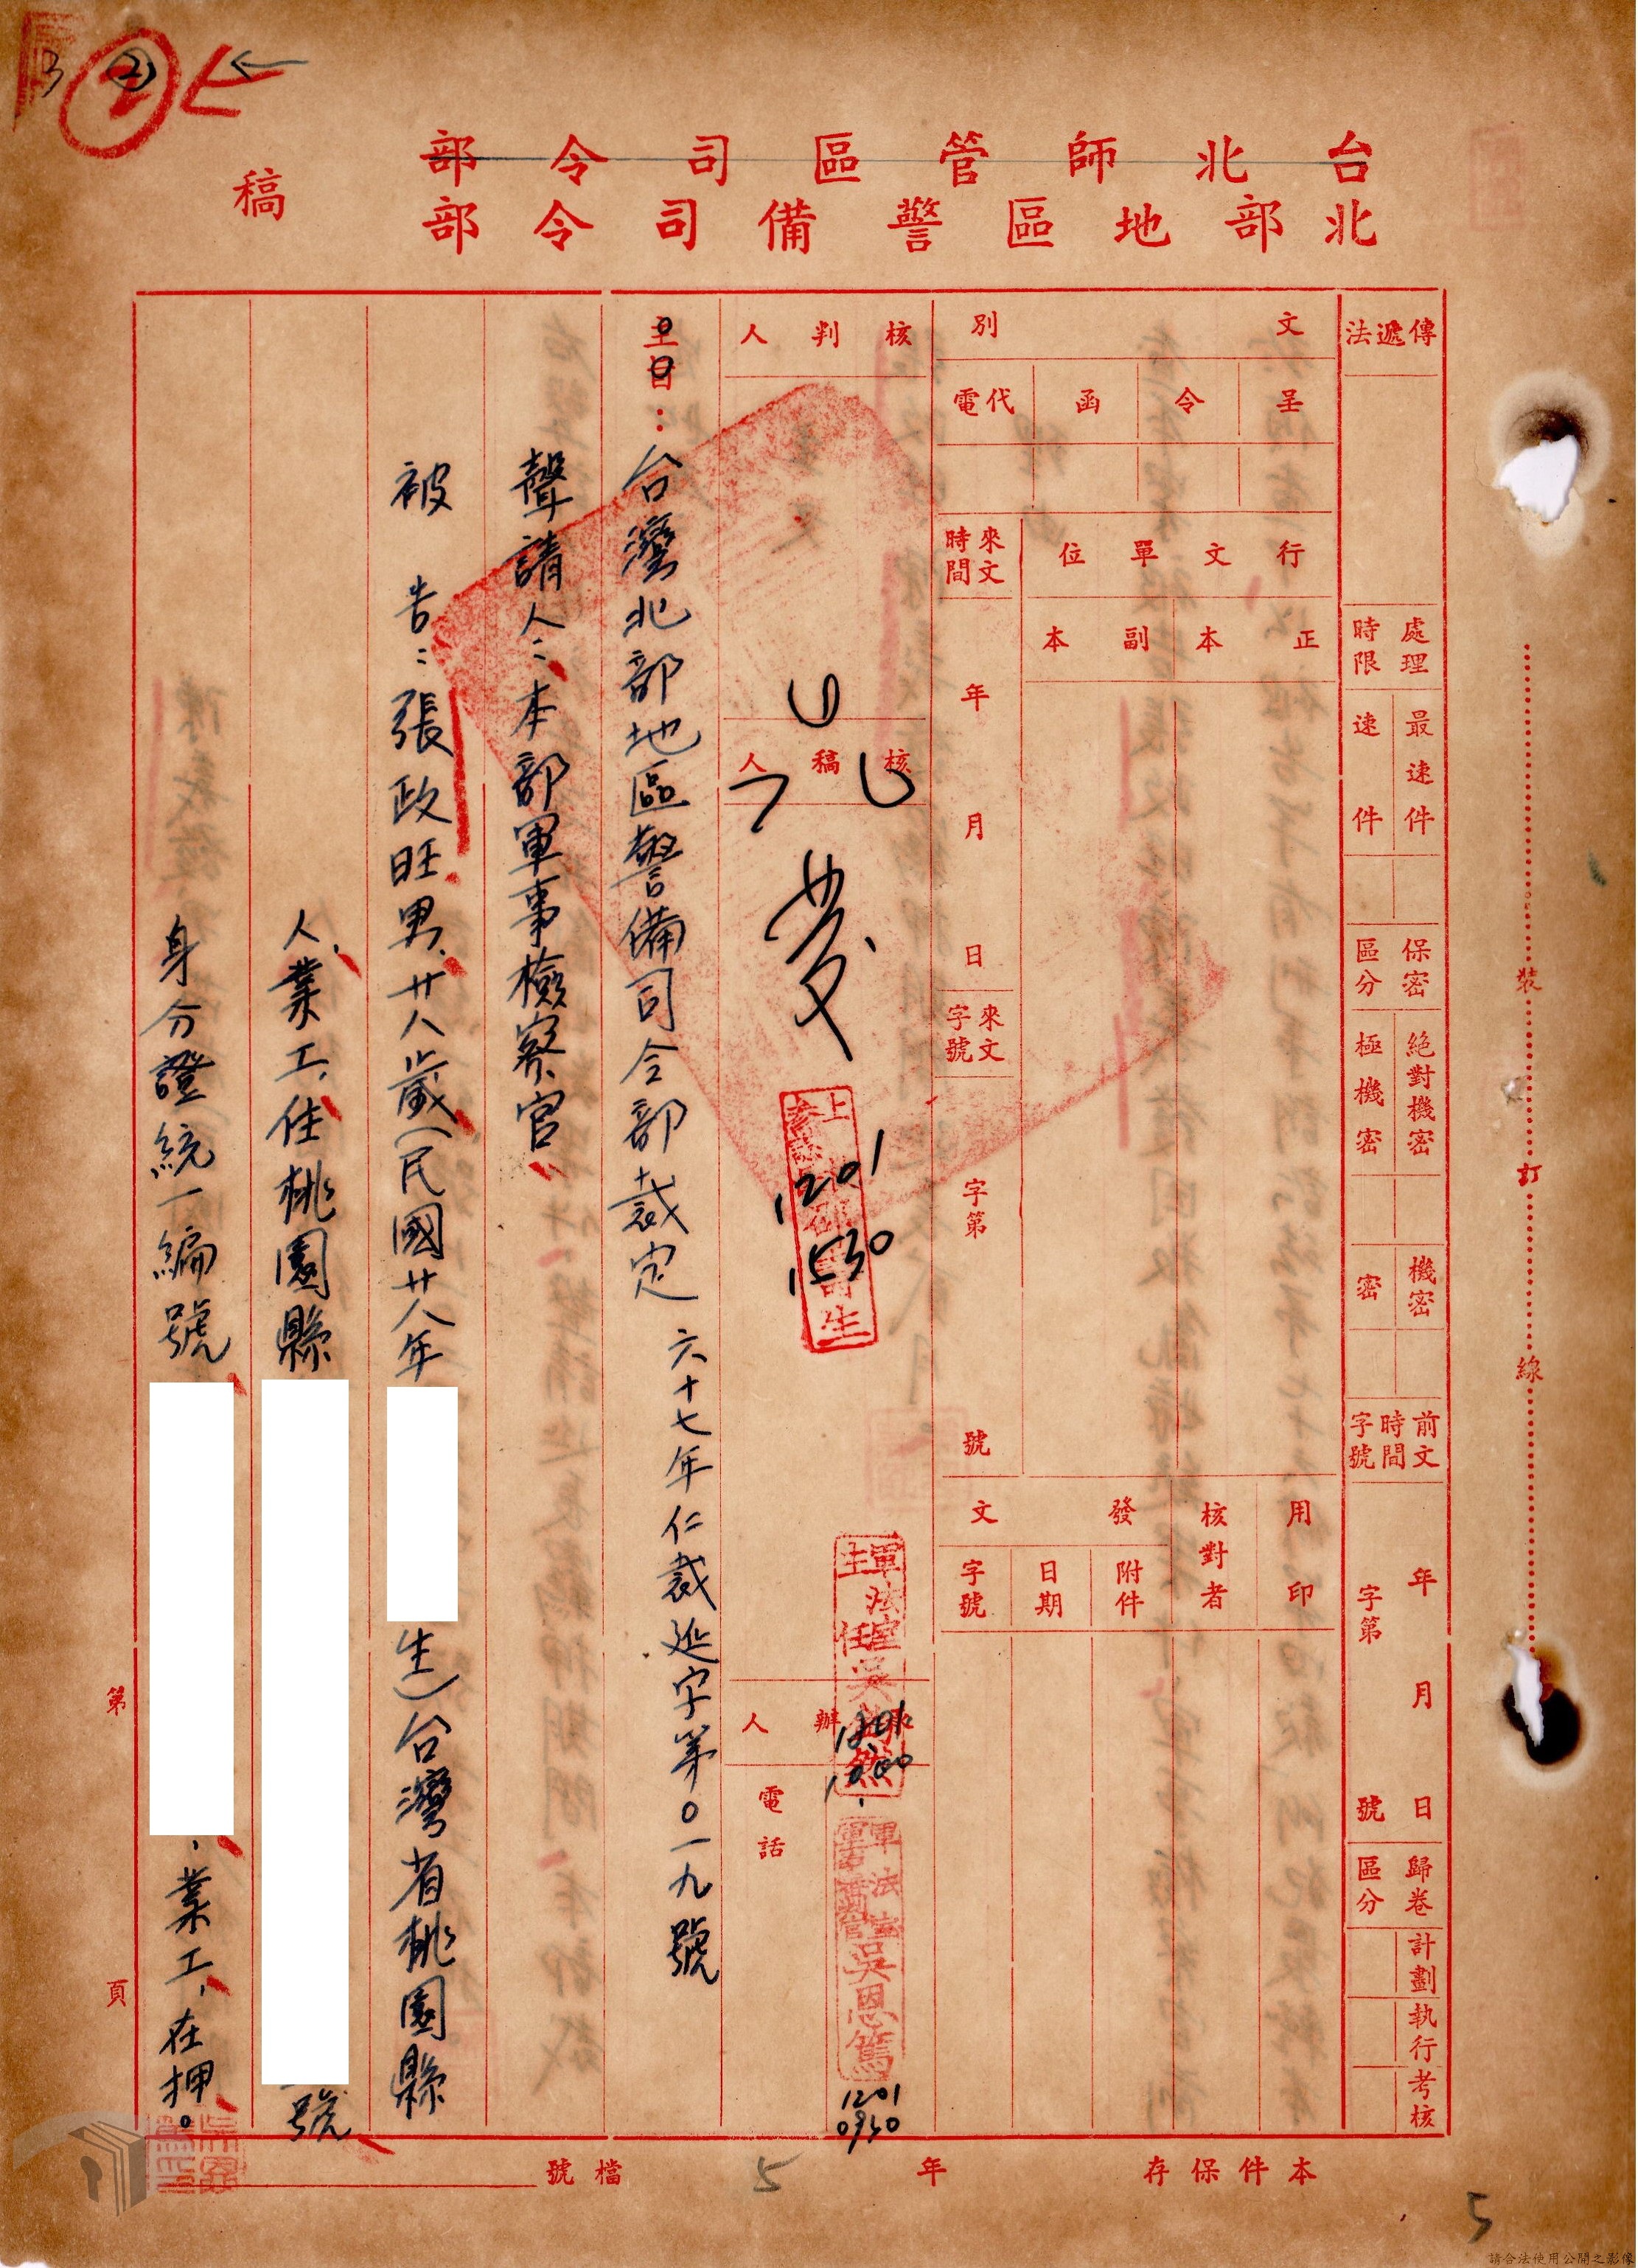 台北師管區司令部
北部地區警備司令部
稿
傳遞法
處理時限
最速件
速件
保密區分
絕對機密
極機密
機密
密
前文時間字號
年 月 日
字第 號
歸卷區分
計劃
執行
考核
文別
呈
令
函
代電
行文單位
正本
副本
來文時間
年 月 日
來文字號
字第 號
用印
核對者
發文
附件
日期
字號
核判人
核稿人
1201
1530
軍法室主任吳
1201
軍法室
吳恩篤
1201
0930
辦人
電話
主旨：台灣北部地區警備司令部裁定 六十七年仁裁延字第〇一九號
聲請人：本部軍事檢察官
被 告：張政旺男、廿八歲（民國廿八年
生）台灣省桃園縣
人、業工、住桃園縣
號
身分證統一編號
、業工、在押。
第 頁
裝
訂
線
本件保存 年
5
檔號
5
請合法使用公開之影像